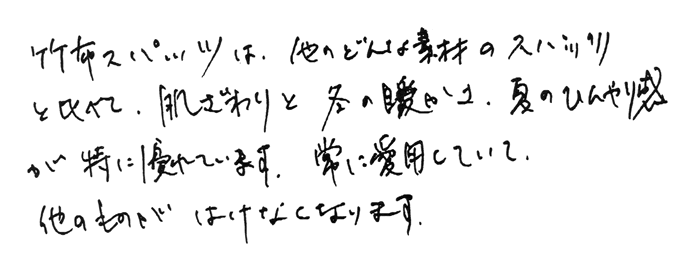 竹布スパッツは、他のどんな素材のスパッツ
と比べて、肌ざわりと冬の暖かさ、夏のひんやり感
が特に優れています。常に愛用していて、
他のものがはけなくなります。